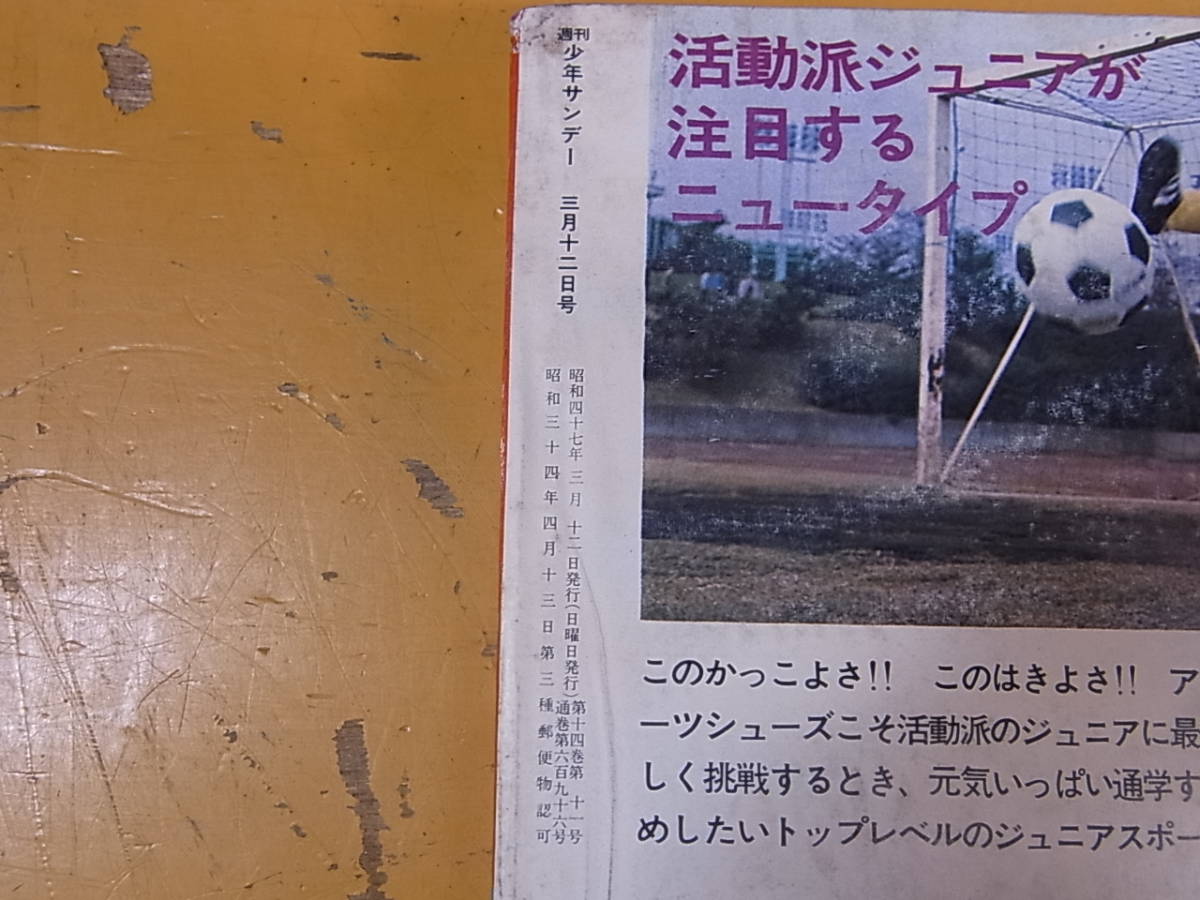 週刊少年サンデー 三月十二日号
昭和四十七年三月十二日発行(日曜日発行)第十四巻第十一号
通巻第六百九十六号
昭和三十四年四月十三日第三種郵便物認可
活動派ジュニアが
注目する
ニュータイプ
このかっこよさ!! このはきよさ!! ア
ーツシューズこそ活動派のジュニアに最
しく挑戦するとき、元気いっぱい通学す
めしたいトップレベルのジュニアスポー